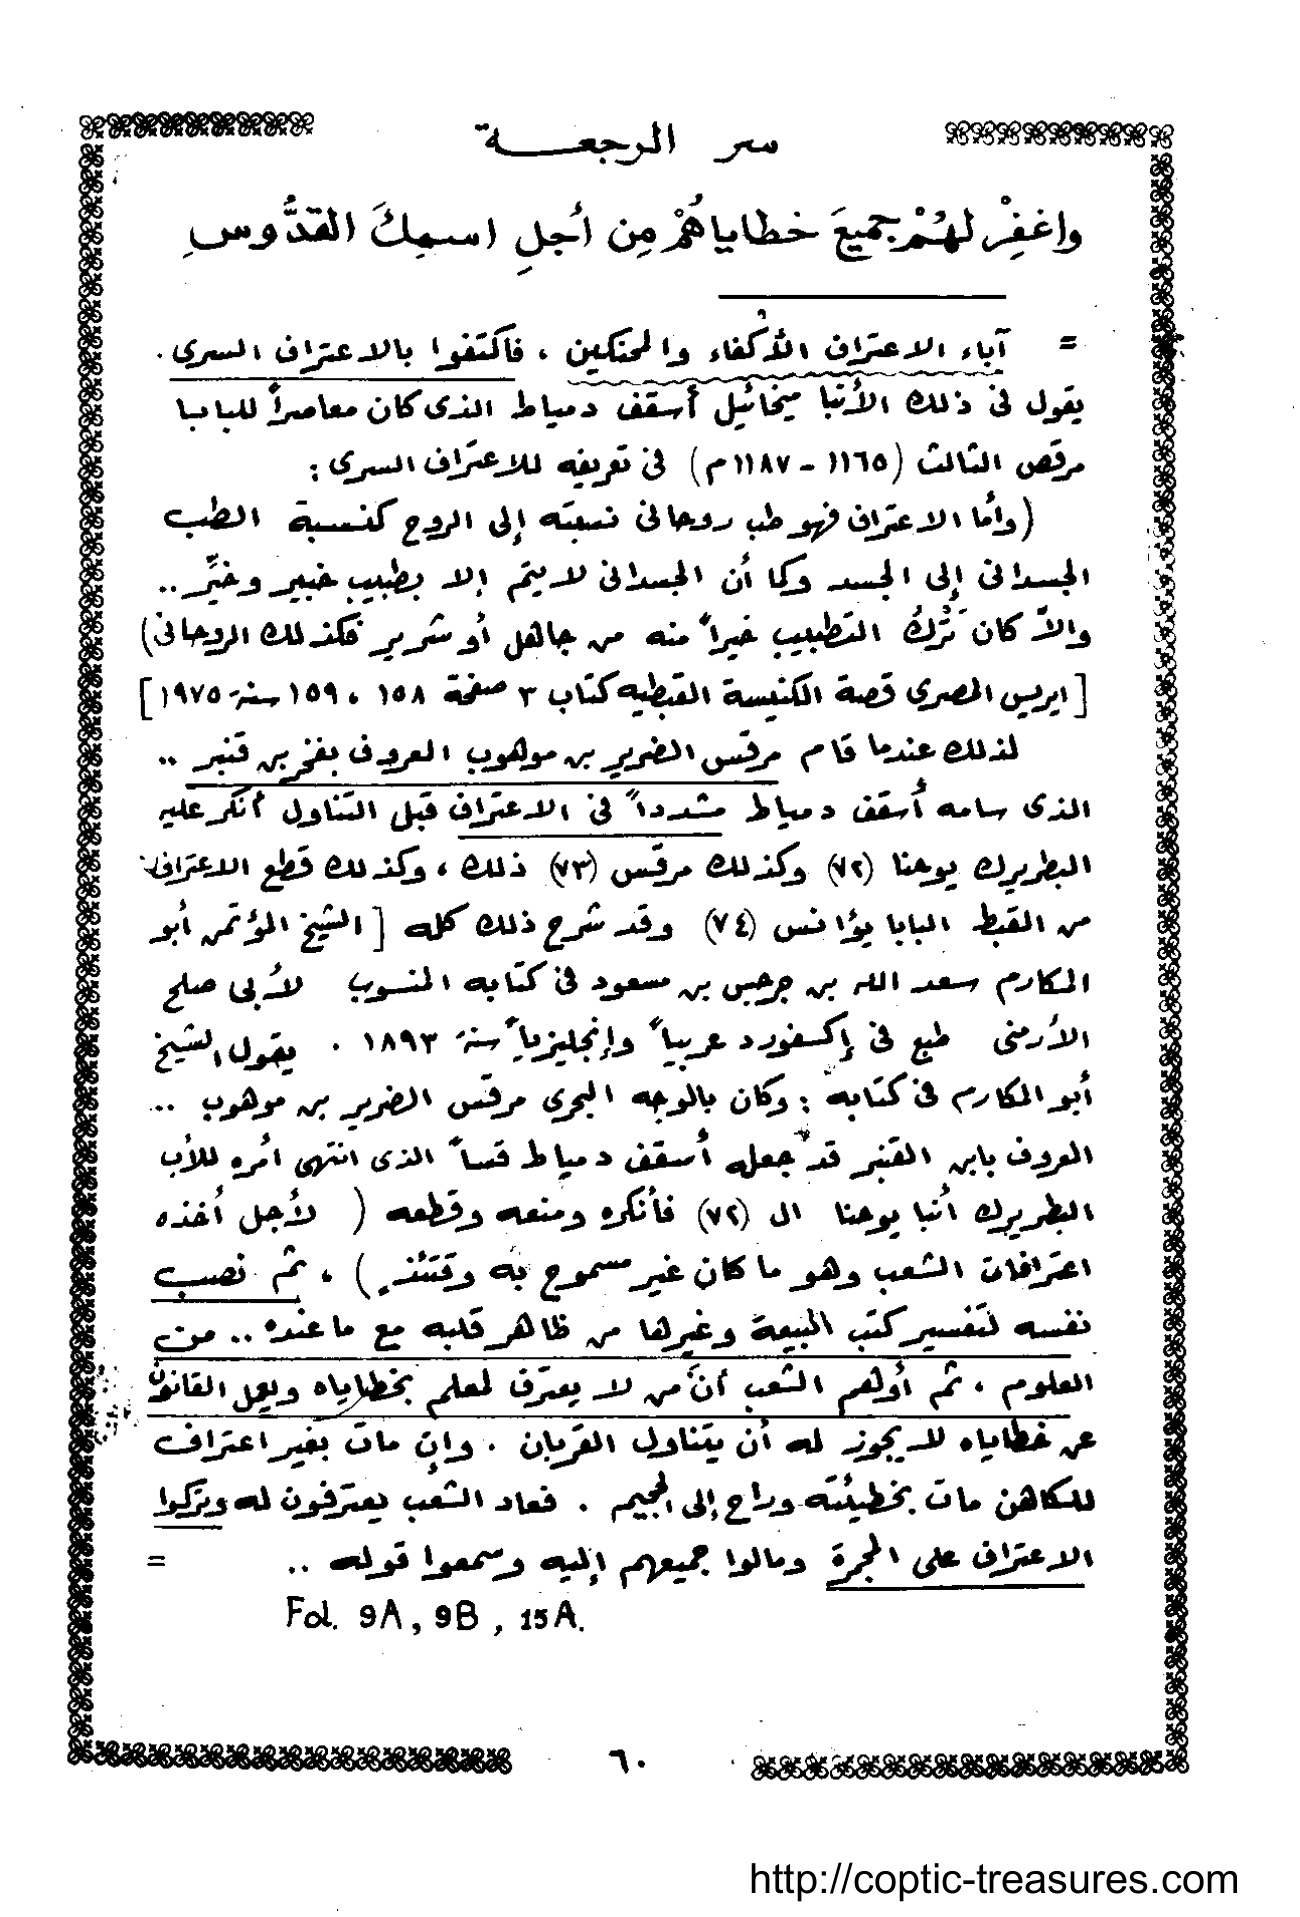 سر الرجعـــة
واغفِرْ لهُمْ جميعَ خطاياهُمْ مِن أجلِ اسمِكَ القدُّوسِ
= آباء الاعتراف الأكفاء والمحنكين ، فاكتفوا بالاعتراف السرى .
يقول فى ذلك الأنبا ميخائيل أسقف دمياط الذى كان معاصراً للبابا
مرقص الثالث (١١٦٥ - ١١٨٧م) فى تعريفه للاعتراف السرى :
(وأما الاعتراف فهو طب روحانى نسبته إلى الروح كنسبة الطب
الجسدانى إلى الجسد وكما أن الجسدانى لا يتم إلا بطبيب خبير وخيِّر ..
والاَّ كان تَرْكُ التطبيب خيراً منه من جاهل أو شرير فكذلك الروحانى)
[ ايريس المصرى قصة الكنيسة القبطيه كتاب ٣ صفحة ١٥٨ ، ١٥٩ سنة ١٩٧٥ ]
لذلك عندما قام مرقس الضرير بن موهوب المعروف بفخر بن قنبر ..
الذى سامه أسقف دمياط مشدداً فى الاعتراف قبل التناول أنكر عليه
البطريرك يوحنا (٧٢) وكذلك مرقس (٧٣) ذلك ، وكذلك قطع الاعتراف
من القبط البابا يؤانس (٧٤) وقد شرح ذلك كله [ الشيخ المؤتمن أبو
المكارم سعد الله بن جرجس بن مسعود فى كتابه المنسوب لأبى صلح
الأرمنى طبع فى إكسفورد عربياً وإنجليزياً سنة ١٨٩٣ . يقول الشيخ
أبو المكارم فى كتابه : وكان بالوجه البحرى مرقس الضرير بن موهوب ..
المعروف بابن القنبر قد جعله أسقف دمياط قساً الذى انتهى أمره للأب
البطريرك أنبا يوحنا ال (٧٢) فأنكره ومنعه وقطعه ( لأجل أخذه
اعترافات الشعب وهو ما كان غير مسموح به وقتئذٍ ) ، ثم نصب
نفسه لتفسير كتب البيعة وغيرها من ظاهر قلبه مع ما عنده .. من
العلوم ، ثم أولهم الشعب أنَّ من لا يعترف لمعلم بخطاياه ويعمل القانون
عن خطاياه لا يجوز له أن يتناول القربان . وإن مات بغير اعتراف
للكاهن مات بخطيئته وراح إلى الجحيم . فعاد الشعب يعترفون له وتركوا
الاعتراف على المجمرة ومالوا جميعهم إليه وسمعوا قوله .. =
Fol. 9A, 9B, 15A.
٦٠
http://coptic-treasures.com